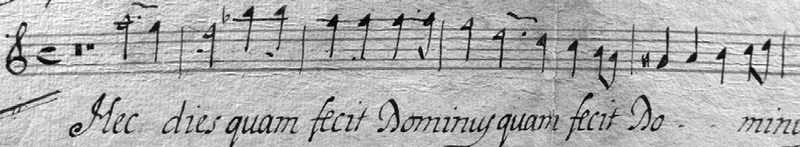 Hec dies quam fecit Dominus quam fecit Do - - minu